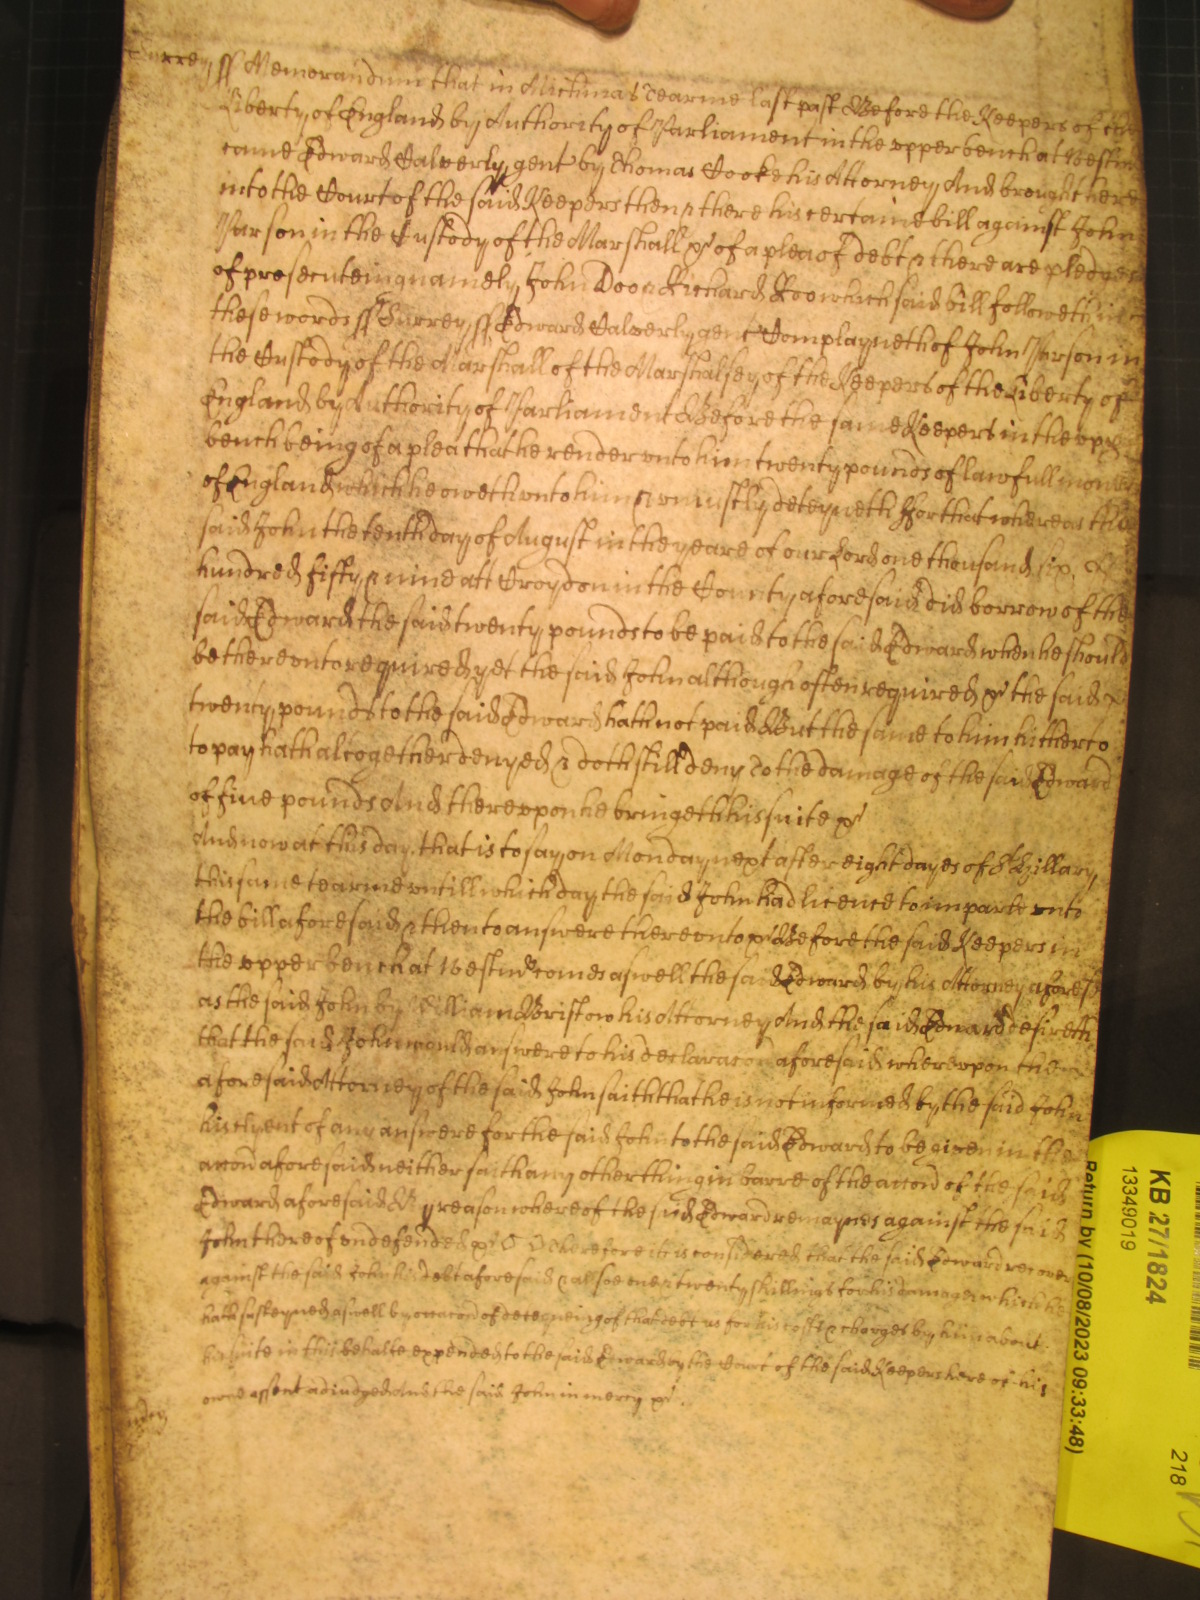 Surrey ss Memorandum that in Michmas Tearme last past Before the Keepers of the
Liberty of England by Authority of Parliament in the vpper bench at Westm
came Edward Calverly gent by Thomas Cooke his Attorney And brought here
into the Court of the said Keepers then & there his certaine bill against John
Parson in the Custody of the Marshall &c of a plea of debt & there are pledges
of prosecuteing namely John Doo & Richard Roo which said bill followeth in
these words ss Surrey ss Edward Calverly gent Complayneth of John Parson in
the Custody of the Marshall of the Marshalsey of the Keepers of the Liberty of
England by Authority of Parliament Before the same Keepers in the vpp
bench being of a plea that he render vnto him twenty pounds of lawfull money
of England which he oweth vnto him & vniustly deteyneth For that whereas the
said John the tenth day of August in the yeare of our Lord one thousand six
hundred fifty & nine att Croydon in the County aforesaid did borrow of the
said Edward the said twenty pounds to be paid to the said Edward when he should
be therevnto required yet the said John although often required &c the said
twenty pounds to the said Edward hath not paid But the same to him hitherto
to pay hath altogether denyed & doth still deny To the damage of the said Edward
of five pounds And therevpon he bringeth his suite &c
And now at this day that is to say on Monday next after eight dayes of St Hillary
this same tearme vntill which day the said John had licence to imparle vnto
the bill aforesaid & then to answere therevnto &c Before the said Keepers in
the vpper bench at Westmr comes aswell the said Edward by his Attorney aforesd
as the said John by William Bristow his Attorney And the said Edward desireth
that the said John would answere to his declaracon aforesaid wherevpon the
aforesaid Attorney of the said John saith that he is not informed by the said John
his clyent of any answere for the said John to the said Edward to be given in the
accon aforesaid neither saith any other thing in barre of the accon of the said
Edward aforesaid By reason whereof the said Edward remaynes against the said
John thereof vndefended &c Therefore it is considered that the said Edward recover
against the said John his debt aforesaid & allsoe one & twenty shillings for his damages which he
hath susteyned aswell by occacon of deteyneing of that debt as for his costs & charges by him about
his suite in this behalfe expended to the said Edward by the Court of the said Keepers here of his
owne assent adiudged And the said John in mercy &c
Return by (10/08/2023 09:33:48)
13349019
KB 27/1824
218